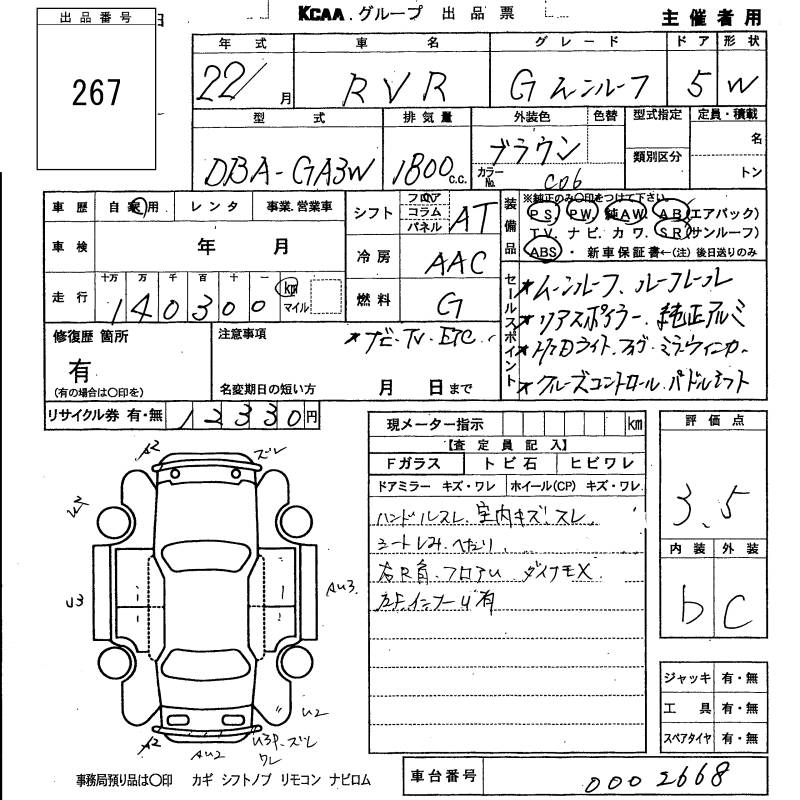 KCAA.グループ 出品票
主催者用
出品番号
267
年式 車名 グレード ドア 形状
22/ 月 RVR G ムーンルーフ 5 W
型式 排気量 外装色 色替 型式指定 定員・積載
DBA-GA3W 1800 c.c. ブラウン 類別区分 名
カラーNo. C06 トン
車歴 自家用 レンタ 事業.営業車
シフト フロア コラム パネル AT
装備品 ※純正のみ〇印をつけて下さい。
PS PW 純AW AB(エアバック)
TV ナビ カワ SR(サンルーフ)
ABS ・ 新車保証書←(注) 後日送りのみ
車検 年 月
冷房 AAC
走行 十万 万 千 百 十 一
140300 km マイル
燃料 G
セールスポイント
★ムーンルーフ、ルーフレール
★リアスポイラー、純正アルミ
ライト フォグ ミラーウィンカー
★クルーズコントロール パドルシフト
修復歴 箇所
有
(有の場合は〇印を)
注意事項
★ナビ・TV・ETC
名変期日の短い方 月 日まで
リサイクル券 有・無 12330円
現メーター指示 km
【査定員記入】
Fガラス トビ石 ヒビワレ
ドアミラー キズ・ワレ ホイール(CP) キズ・ワレ
ハンドルスレ 室内キズ、スレ
シートしみ へたり
右R角 フロアU ダイナモX
左Fインナー U有
評価点
3.5
内装 外装
b C
ジャッキ 有・無
工具 有・無
スペアタイヤ 有・無
A2 ズレ
U3 AU3
U2
A2 AU2 U3P ズレ
ワレ
事務局預り品は〇印 カギ シフトノブ リモコン ナビロム
車台番号 0002668